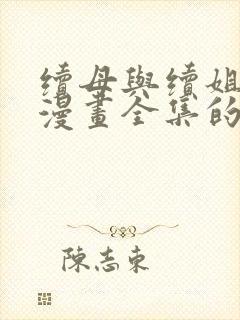 續母與續姐
漫畫全集的
陳志東